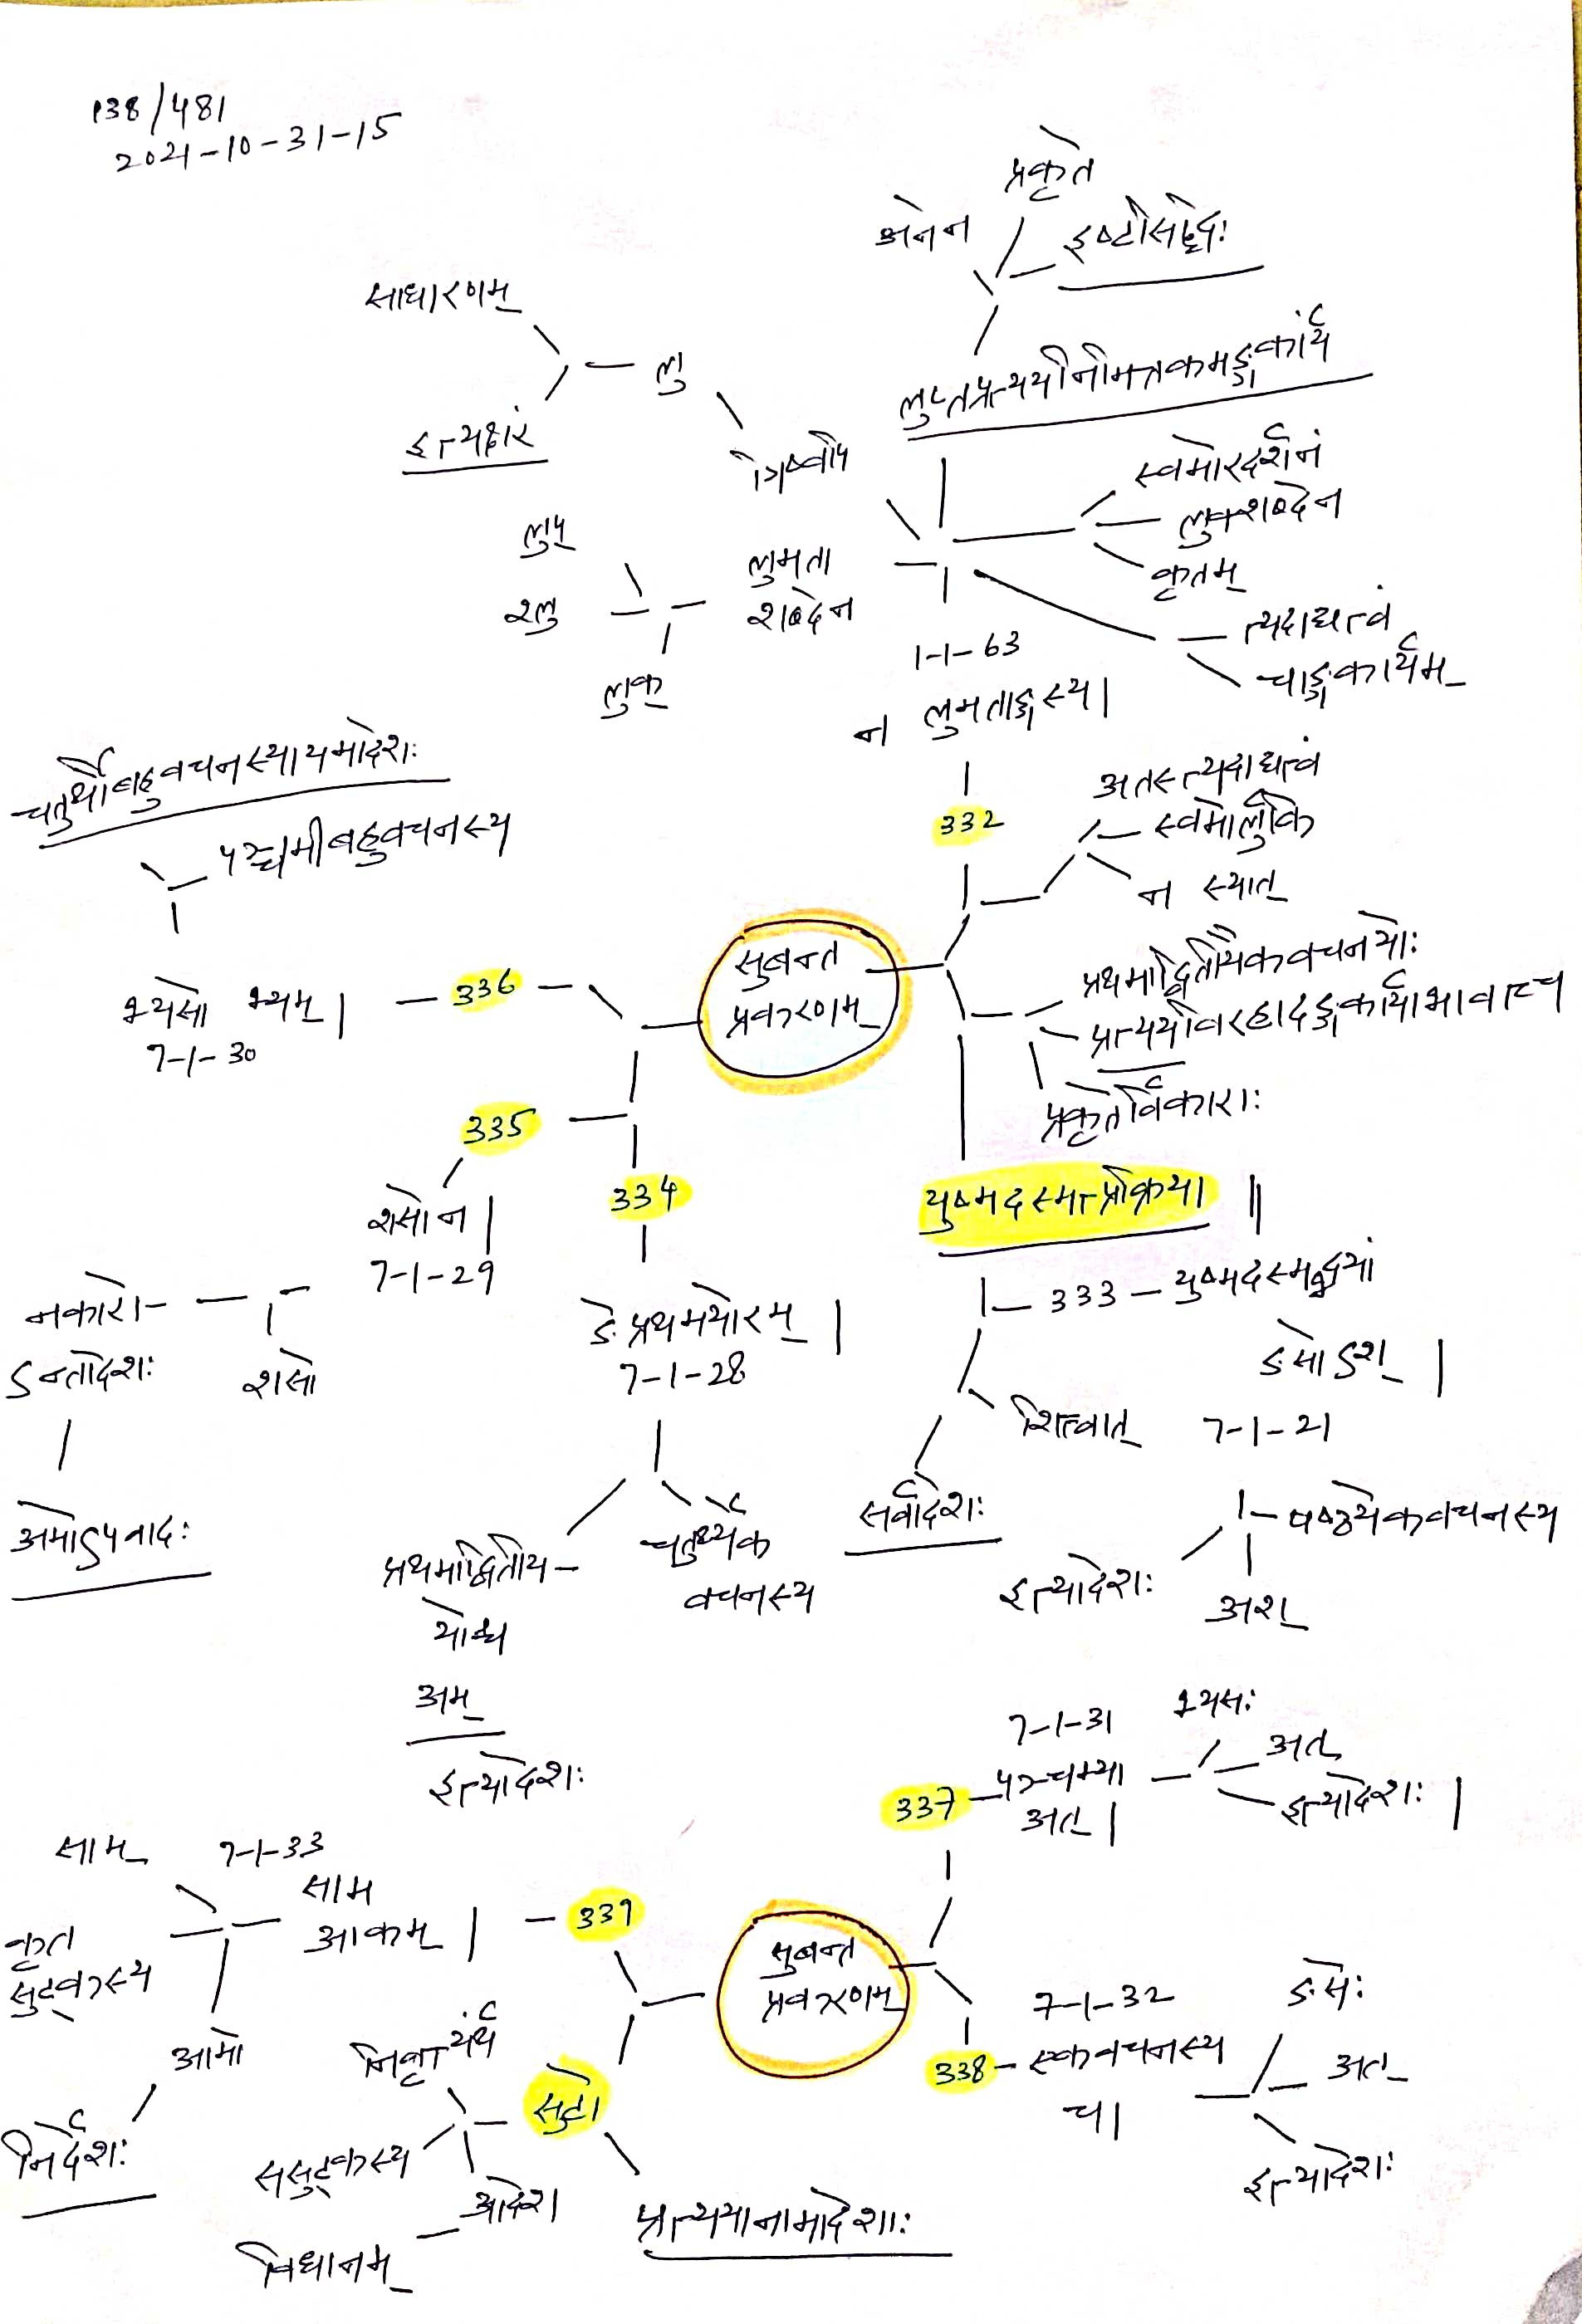 138/481
2021-10-31-15
प्रकृते
अनेन
इष्टसिद्धिः
साधारणम्
लु
इत्यक्षरं
त्रिष्वपि
लुप्तप्रत्ययनिमित्तकमङ्गकार्यं
स्वमोरदर्शनं
लुक्शब्देन
कृतम्
लुप्
श्लु
लुक्
लुमता
शब्देन
त्यदाद्यत्वं
चाङ्गकार्यम्
1-1-63
न लुमताङ्गस्य।
332
अतस्त्यदाद्यत्वं
स्वमोर्लुकि
न स्यात्
चतुर्थीबहुवचनस्यायमादेशः
पञ्चमीबहुवचनस्य
सुबन्त
प्रकरणम्
336
भ्यसो भ्यम्।
7-1-30
प्रथमाद्वितीयैकवचनयोः
प्रत्ययविरहादङ्गकार्याभावाच्च
प्रकृतेर्विकाराः
335
334
शसो न।
7-1-29
युष्मदस्मत्प्रक्रिया॥
333 – युष्मदस्मद्भ्यां
ङसोऽश्।
7-1-21
नकारो-
ऽन्तादेशः
शसो
ङे प्रथमयोरम्।
7-1-28
शित्त्वात्
सर्वादेशः
अमोऽपवादः
प्रथमाद्वितीय-
योश्च
अम्
इत्यादेशः
चतुर्थ्येक
वचनस्य
षष्ठ्येकवचनस्य
इत्यादेशः
अश्
7-1-31
337
पञ्चम्या
अत्।
भ्यसः
अत्
इत्यादेशः।
साम्
7-1-33
साम
आकम्।
339
कृत
सुट्कस्य
आमो
निर्देशः
सुबन्त
प्रकरणम्
7-1-32
338 – एकवचनस्य
च।
ङसेः
अत्
इत्यादेशः
सुटो
निवृत्त्यर्थं
ससुट्कस्य
आदेश
विधानम्
प्रत्ययानामादेशाः